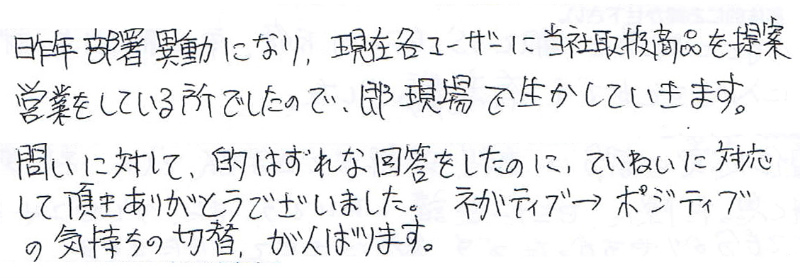 昨年部署異動になり、現在各ユーザーに当社取扱商品を提案
営業をしている所でしたので、即現場で生かしていきます。
問いに対して、的はずれな回答をしたのに、ていねいに対応
して頂きありがとうございました。ネガティブ→ポジティブ
の気持ちの切替、がんばります。